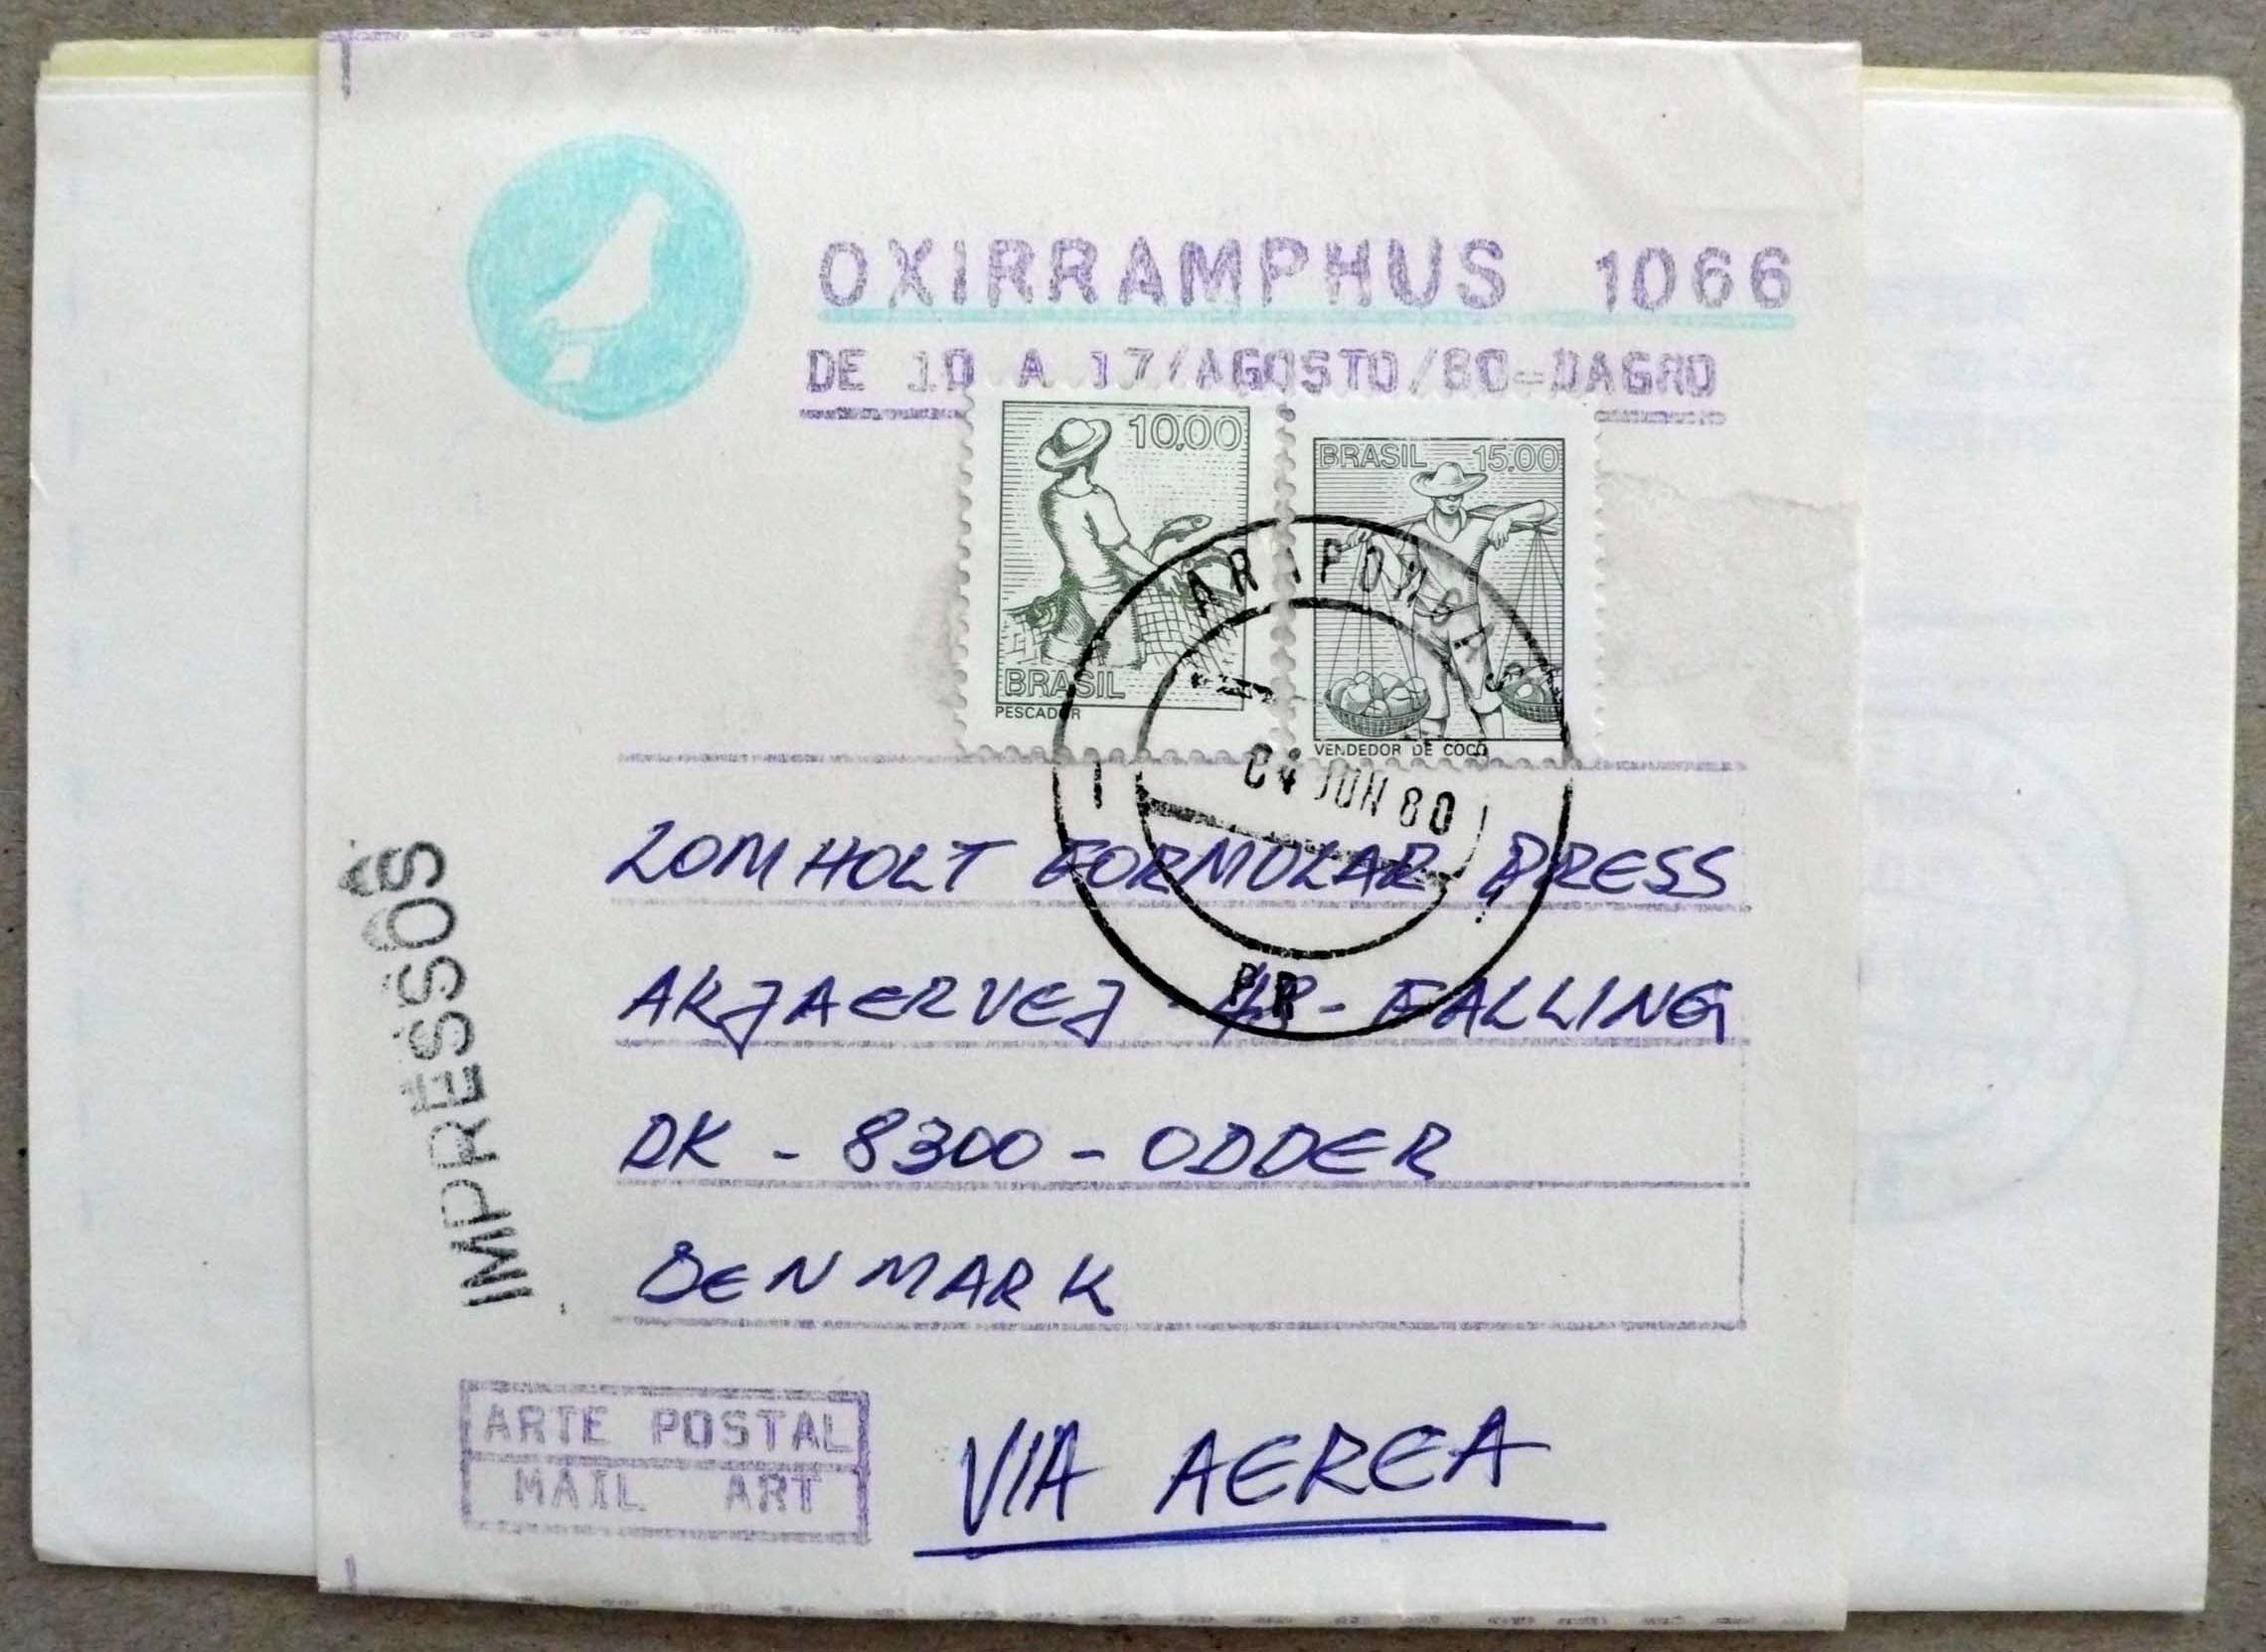 OXIRRAMPHUS 1066
DE 10 A 17/AGOSTO/80=DAGRO
10,00
BRASIL
PESCADOR
BRASIL 15.00
VENDEDOR DE COCO
ARAPONGAS
04 JUN 80
PR
LOMHOLT FORMULAR PRESS
AKJAERVEJ - 48 - FALLING
DK - 8300 - ODDER
DENMARK
IMPRESSOS
ARTE POSTAL
MAIL ART
VIA AEREA